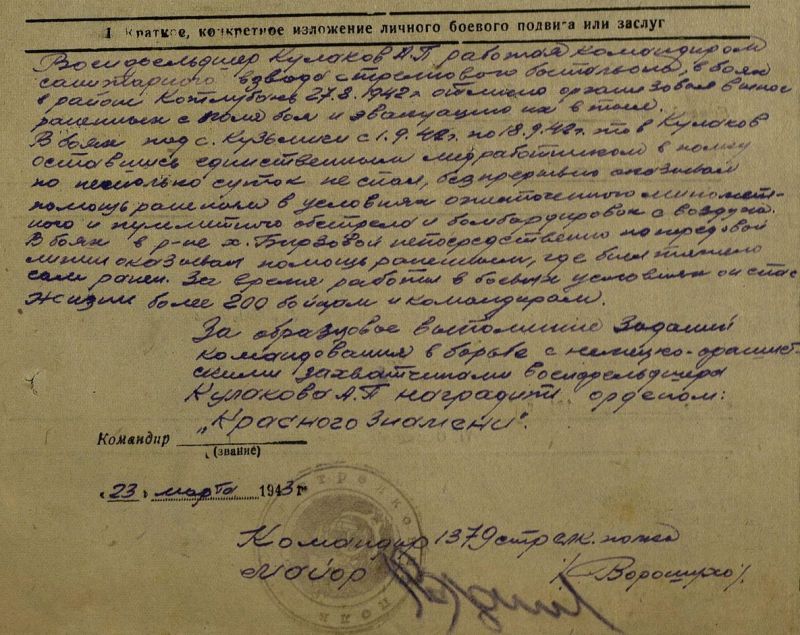 I Краткое, конкретное изложение личного боевого подвига или заслуг
Военфельдшер Кулаков А.П работая командиром
санитарного взвода стрелкового батальона, в боях
в районе Котлубань 27.8.1942г отлично организовал вынос
раненных с поля боя и эвакуацию их в тыл.
В боях под с. Кузьмичи с 1.9.42г. по 18.9.42г. т-в Кулаков
оставшись единственным медработником в полку
по несколько суток не спал, безпрерывно оказывал
помощь раненым в условиях ожесточенного миномет-
ного и пулимётного обстрела и бомбардировок с воздуха.
В боях в р-не х. Бирзовой непосредственно на передовой
линии оказывал помощь раненным, где был тяжело
сам ранен. За время работы в боевых условиях он спас
жизни более 200 бойцам и командирам.
За образцовое выполнение заданий
командования в борьбе с немецко-фашист-
скими захватчиками военфельдшера
Кулакова А.П наградить орденом:
„Красного Знамени".
Командир
(звание)
„23" марта 1943г
Командир 1379 стрелк. полка
майор /Ворошухо/.